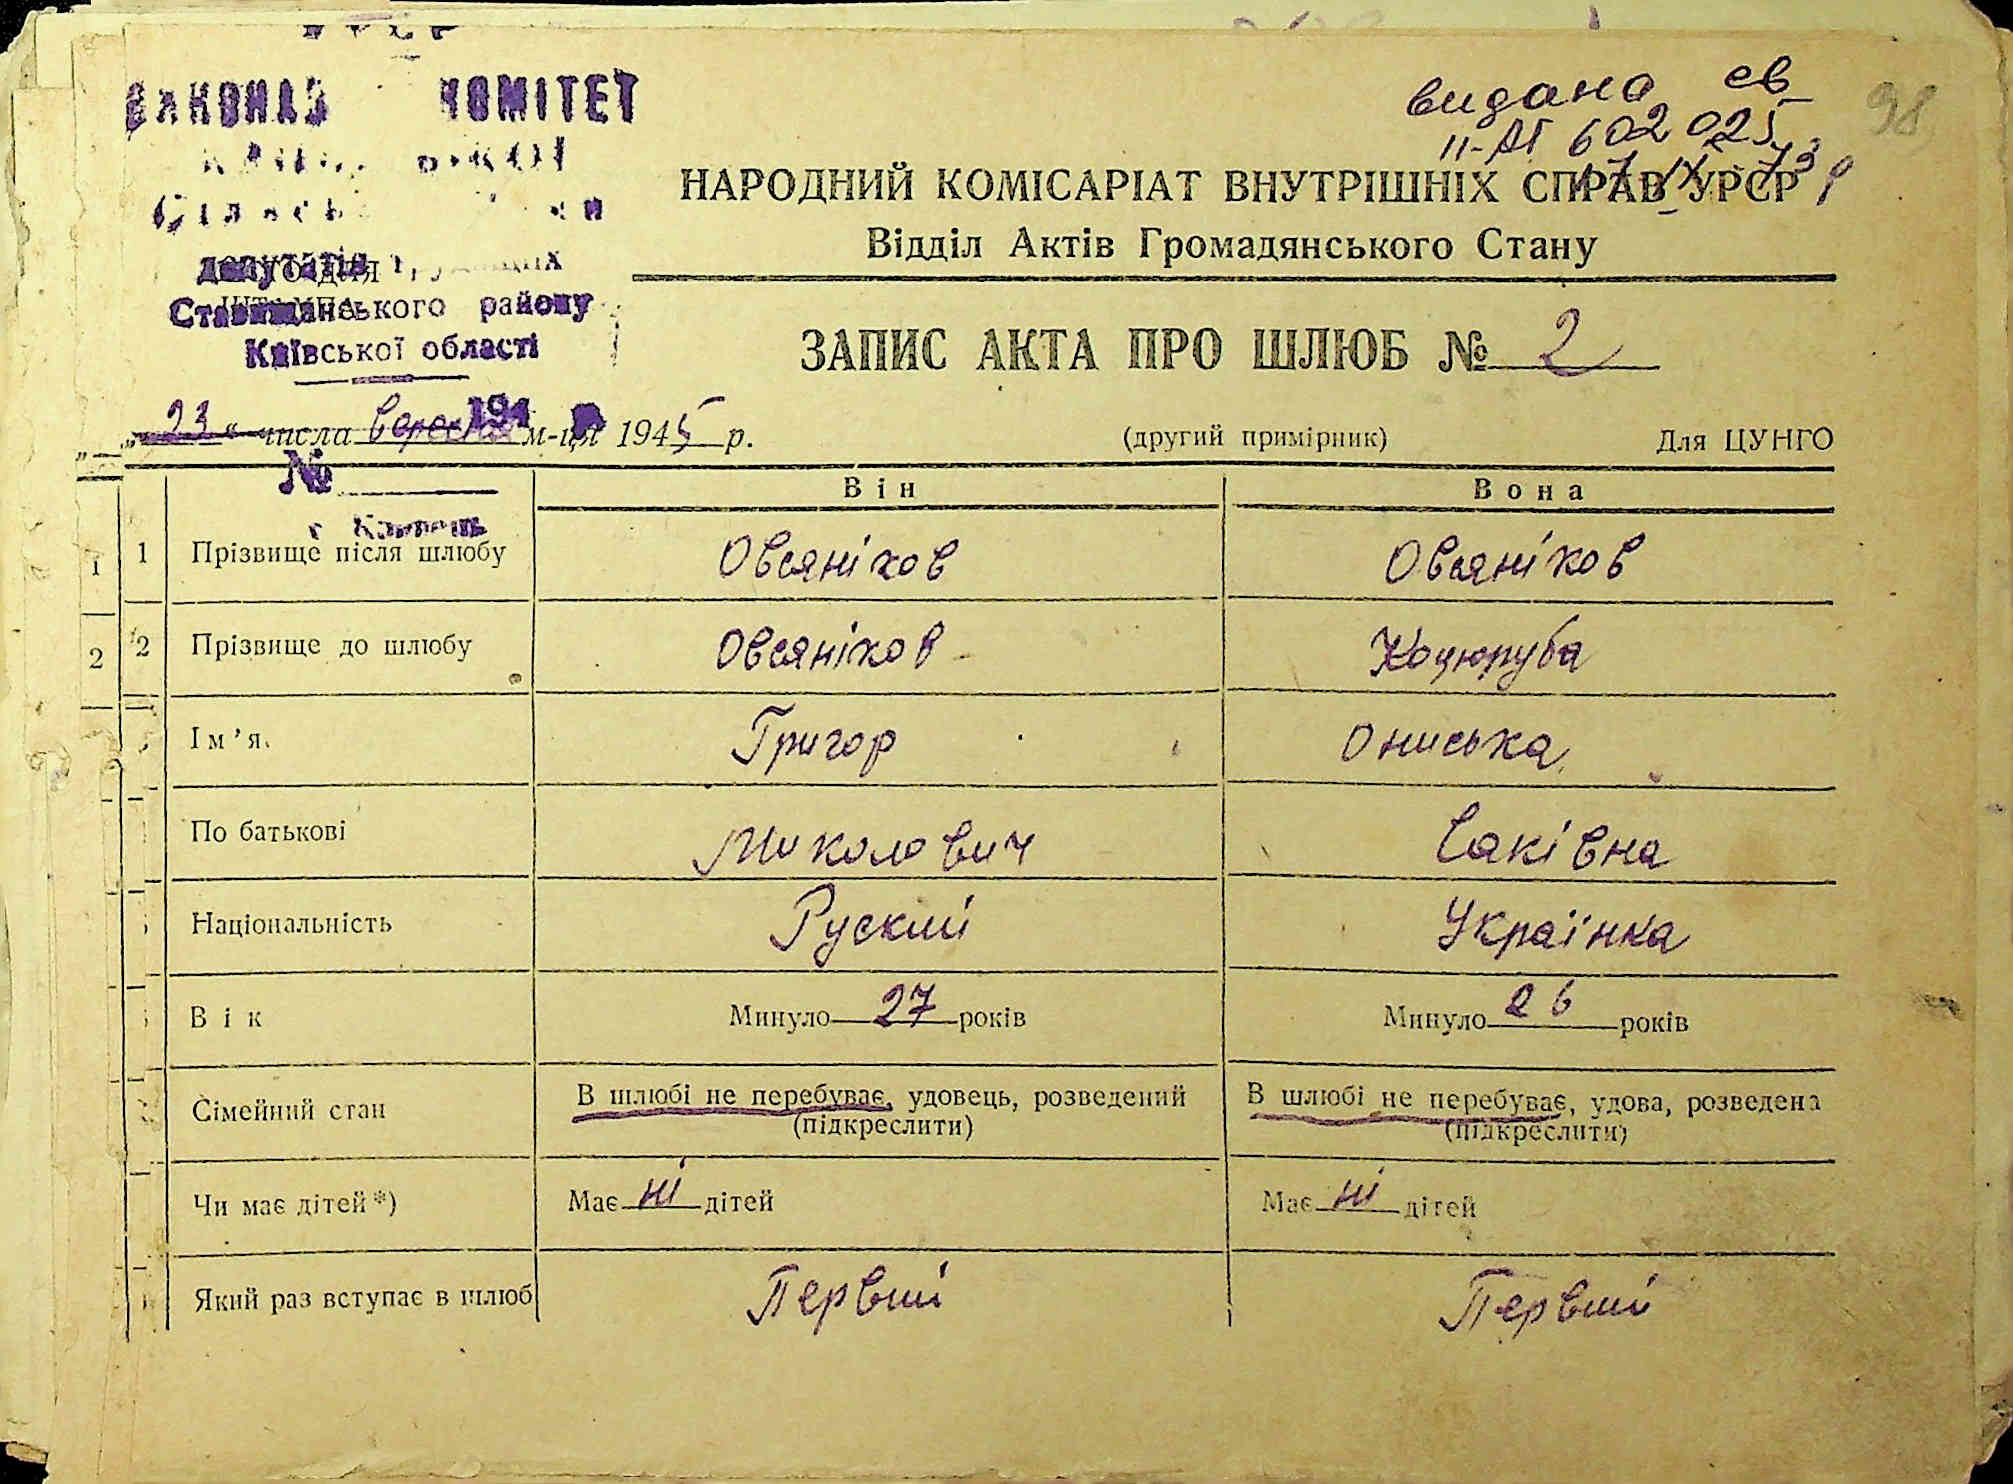 видана св
98
ІІ-АГ 602025
КОМІТЕТ
НАРОДНИЙ КОМІСАРІАТ ВНУТРІШНІХ СПРАВ УРСР
Відділ Актів Громадянського Стану
депутатів
Ставищанського району
Київської області
ЗАПИС АКТА ПРО ШЛЮБ № 2
"23" числа вересня м-ця 1945 р.
(другий примірник) Для ЦУНГО
№
Він Вона
1 1 Прізвище після шлюбу Овсяніков Овсяніков
2 2 Прізвище до шлюбу Овсяніков Коцюруба
Ім'я Григор Ониська
По батькові Миколович Саківна
Національність Руский Українка
Вік Минуло 27 років Минуло 26 років
Сімейний стан В шлюбі не перебуває, удовець, розведений В шлюбі не перебуває, удова, розведена
(підкреслити) (підкреслити)
Чи має дітей*) Має ні дітей Має ні дітей
Який раз вступає в шлюб Первий Первий